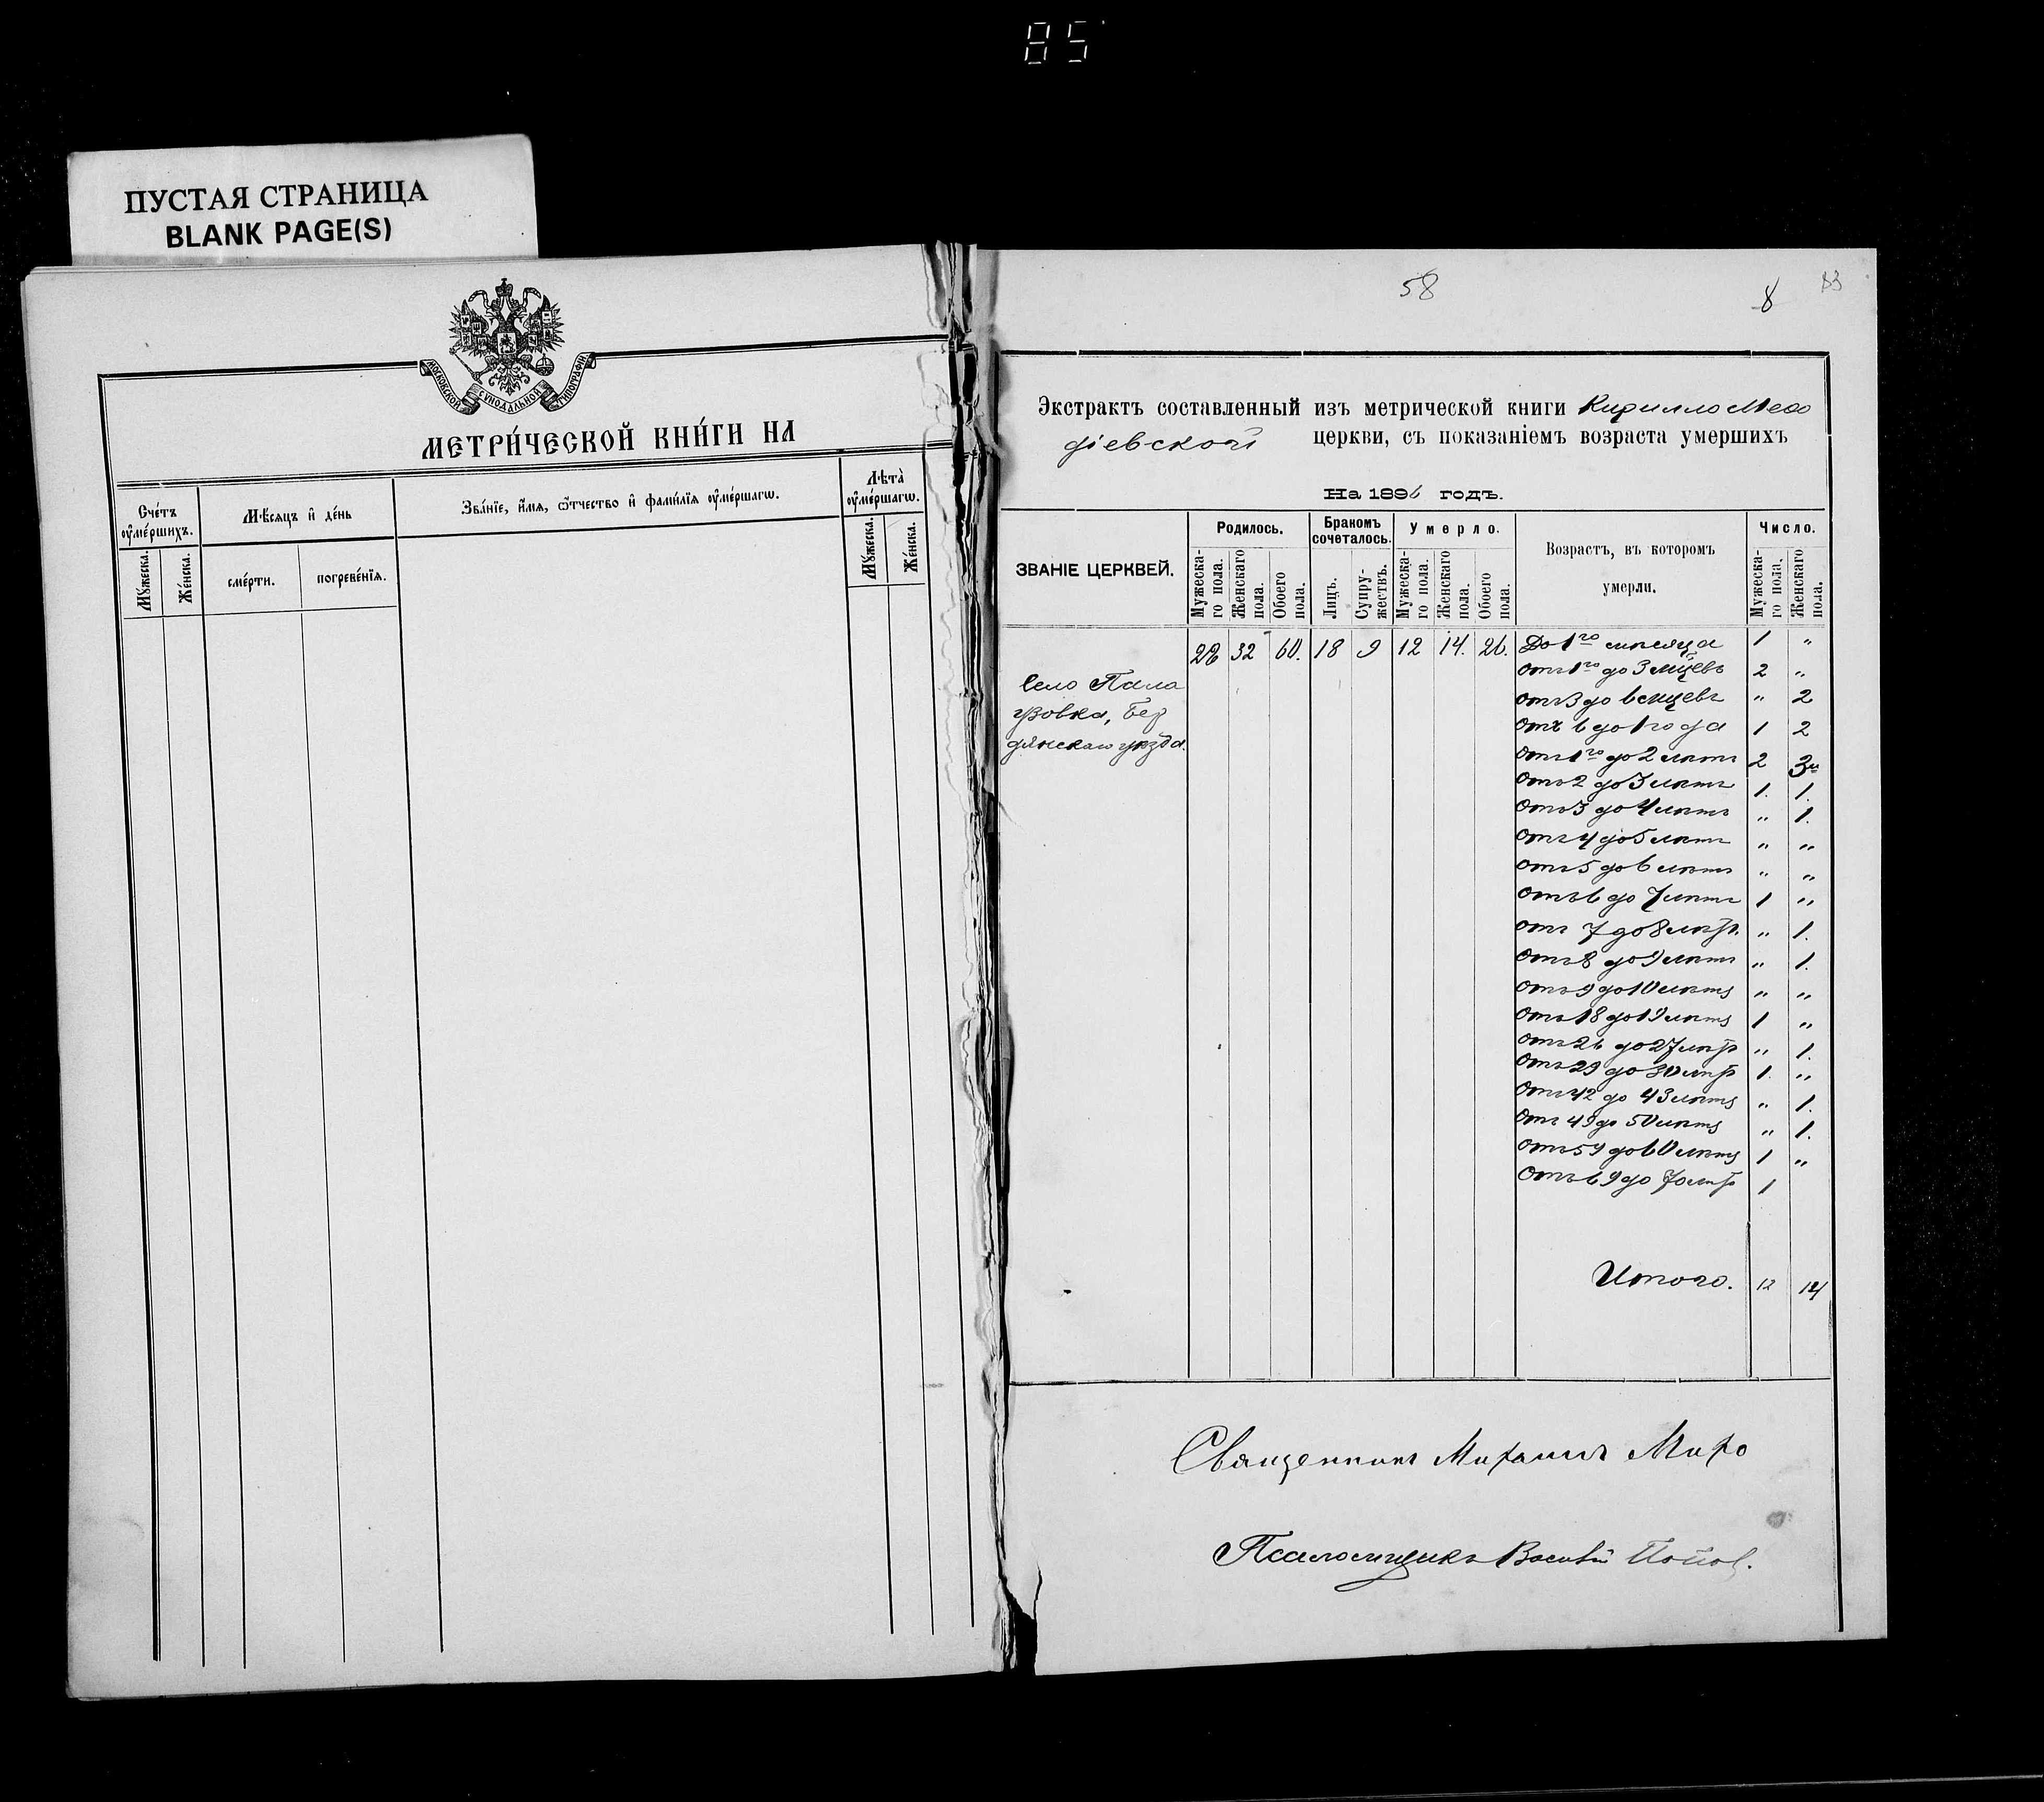 85
ПУСТАЯ СТРАНИЦА
BLANK PAGE(S)
МОСКОВСКОЙ СѴНОДАЛЬНОЙ ТИПОГРАФІИ
МЕТРИ́ЧЕСКОЙ КНИ́ГИ НА
Сче́тъ оу҆ме́ршихъ.
Мѣ́сяцъ и҆ де́нь
Зва́нїе, и҆́мѧ, ѻ҆́тчество и҆ фами́лїѧ оу҆ме́ршагѡ.
Лѣ́та̀ оу҆ме́ршагѡ.
Мꙋ́жеска.
Же́нска.
сме́рти.
погребе́нїѧ.
Мꙋ́жеска.
Же́нска.
58
8
83
Экстрактъ составленный изъ метрической книги Кирилло Меѳо
діевской церкви, съ показаніемъ возраста умершихъ
На 1896 годъ.
ЗВАНІЕ ЦЕРКВЕЙ.
Родилось.
Бракомъ сочеталось.
Умерло.
Возрастъ, въ которомъ умерли.
Число.
Мужеска-го пола.
Женскаго пола.
Обоего пола.
Лицъ.
Супру-жествъ.
Мужеска-го пола.
Женскаго пола.
Обоего пола.
Мужеска-го пола.
Женскаго пола.
Село Пала
узовка, Бер
дянскаго уѣзда.
28 32 60. 18 9 12 14. 26.
До 1го мѣсяца 1 "
Отъ 1го до 3 мцевъ 2 "
Отъ 3 до 6 мцевъ " 2
Отъ 6 до 1 года 1 2
Отъ 1го до 2 лѣтъ 2 3
Отъ 2 до 3 лѣтъ 1. 1.
Отъ 3 до 4 лѣтъ " 1.
Отъ 4 до 5 лѣтъ " "
Отъ 5 до 6 лѣтъ " "
Отъ 6 до 7 лѣтъ 1 "
Отъ 7 до 8 лѣтъ " 1.
Отъ 8 до 9 лѣтъ " 1.
Отъ 9 до 10 лѣтъ " "
Отъ 18 до 19 лѣтъ 1 "
Отъ 26 до 27 лѣтъ " 1.
Отъ 29 до 30 лѣтъ 1. "
Отъ 42 до 43 лѣтъ " 1.
Отъ 49 до 50 лѣтъ " 1.
Отъ 59 до 60 лѣтъ 1 "
Отъ 69 до 70 лѣтъ 1
Итого. 12 14
Священникъ Михаилъ
Псаломщикъ Василій Попов.